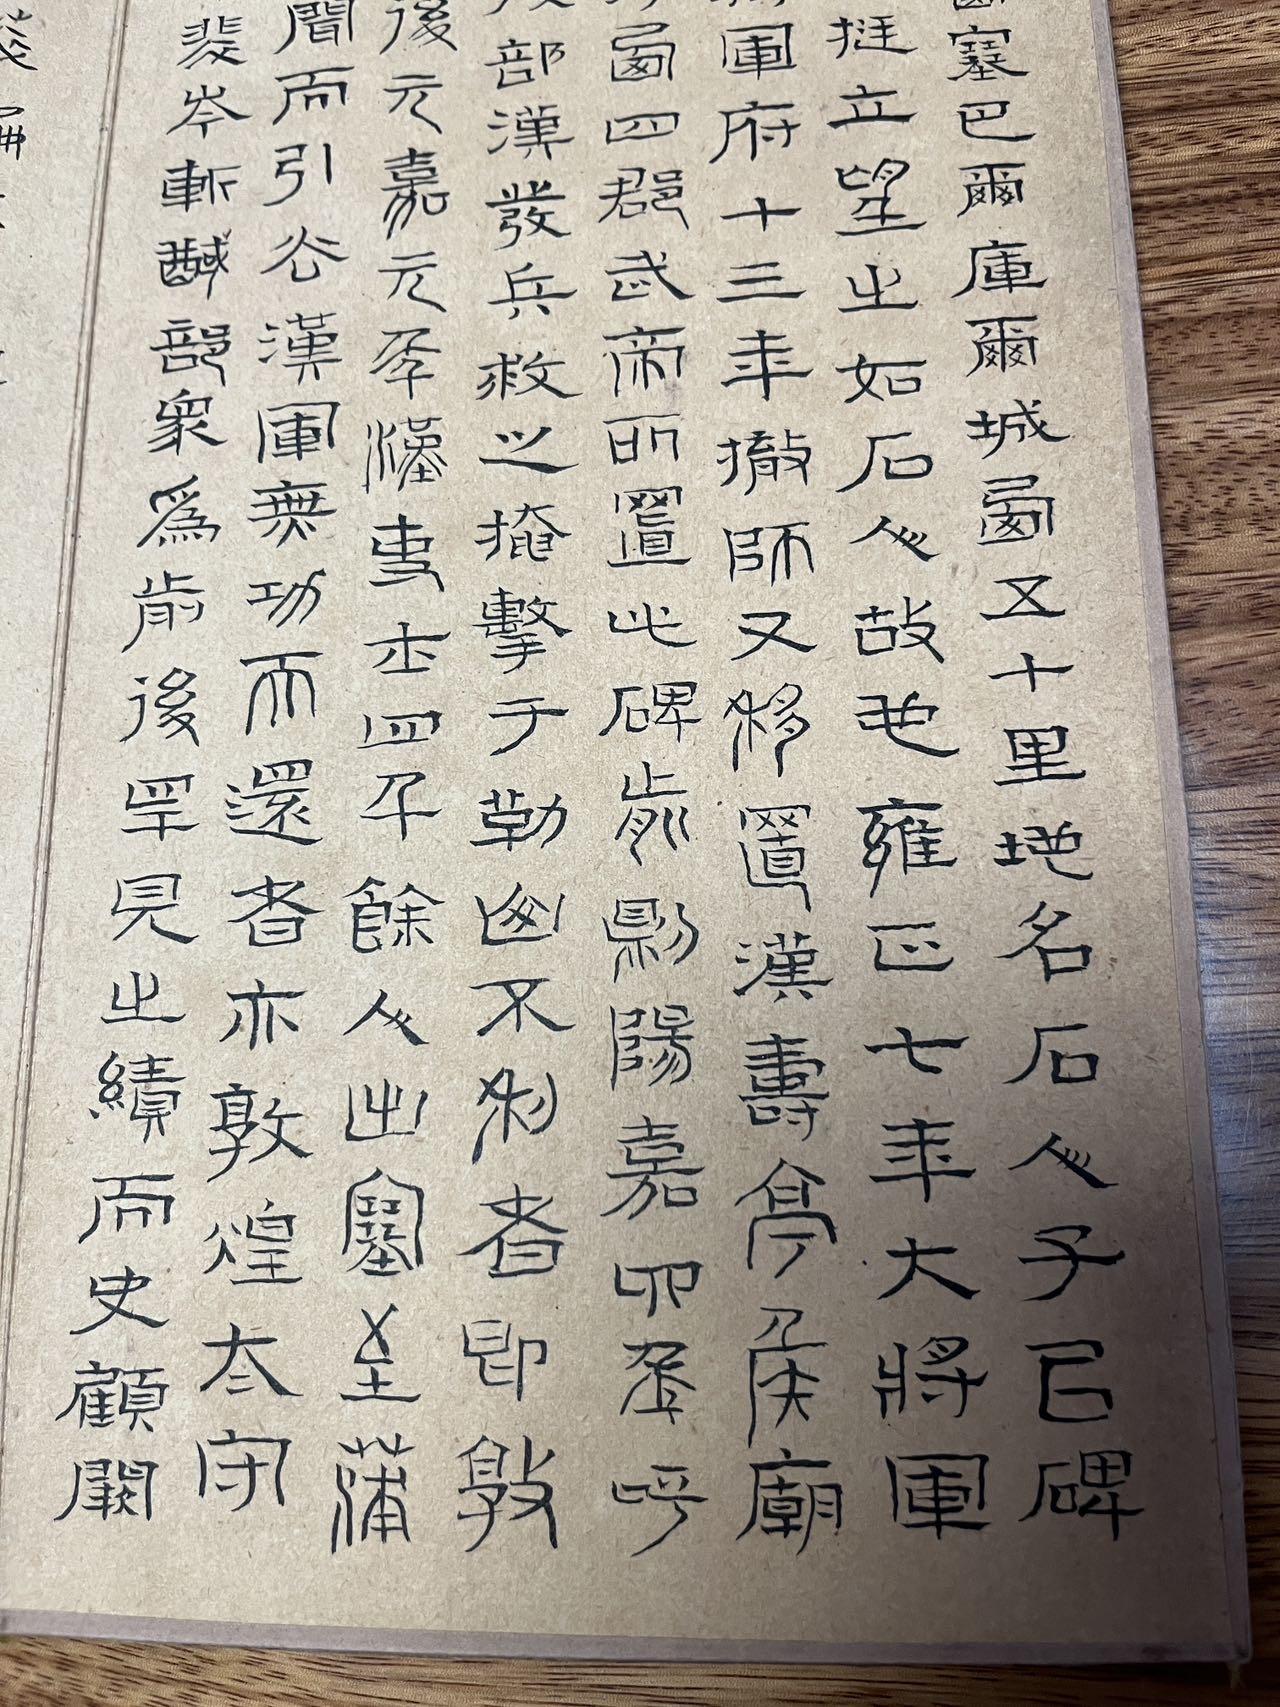 塞巴爾庫爾城西五十里地名石人子已碑
挺立望之如石人故也雍正七年大將軍
軍府十三年撤師又移置漢壽亭侯廟
西四郡武帝所置此碑陽嘉四年呼
部漢發兵救之掩擊于勒山不利者即敦
後元嘉元年漢吏士四千餘人出塞至蒲
聞而引去漢軍無功而還者亦敦煌太守
裴岑斬馘部眾為前後罕見之績而史顧闕